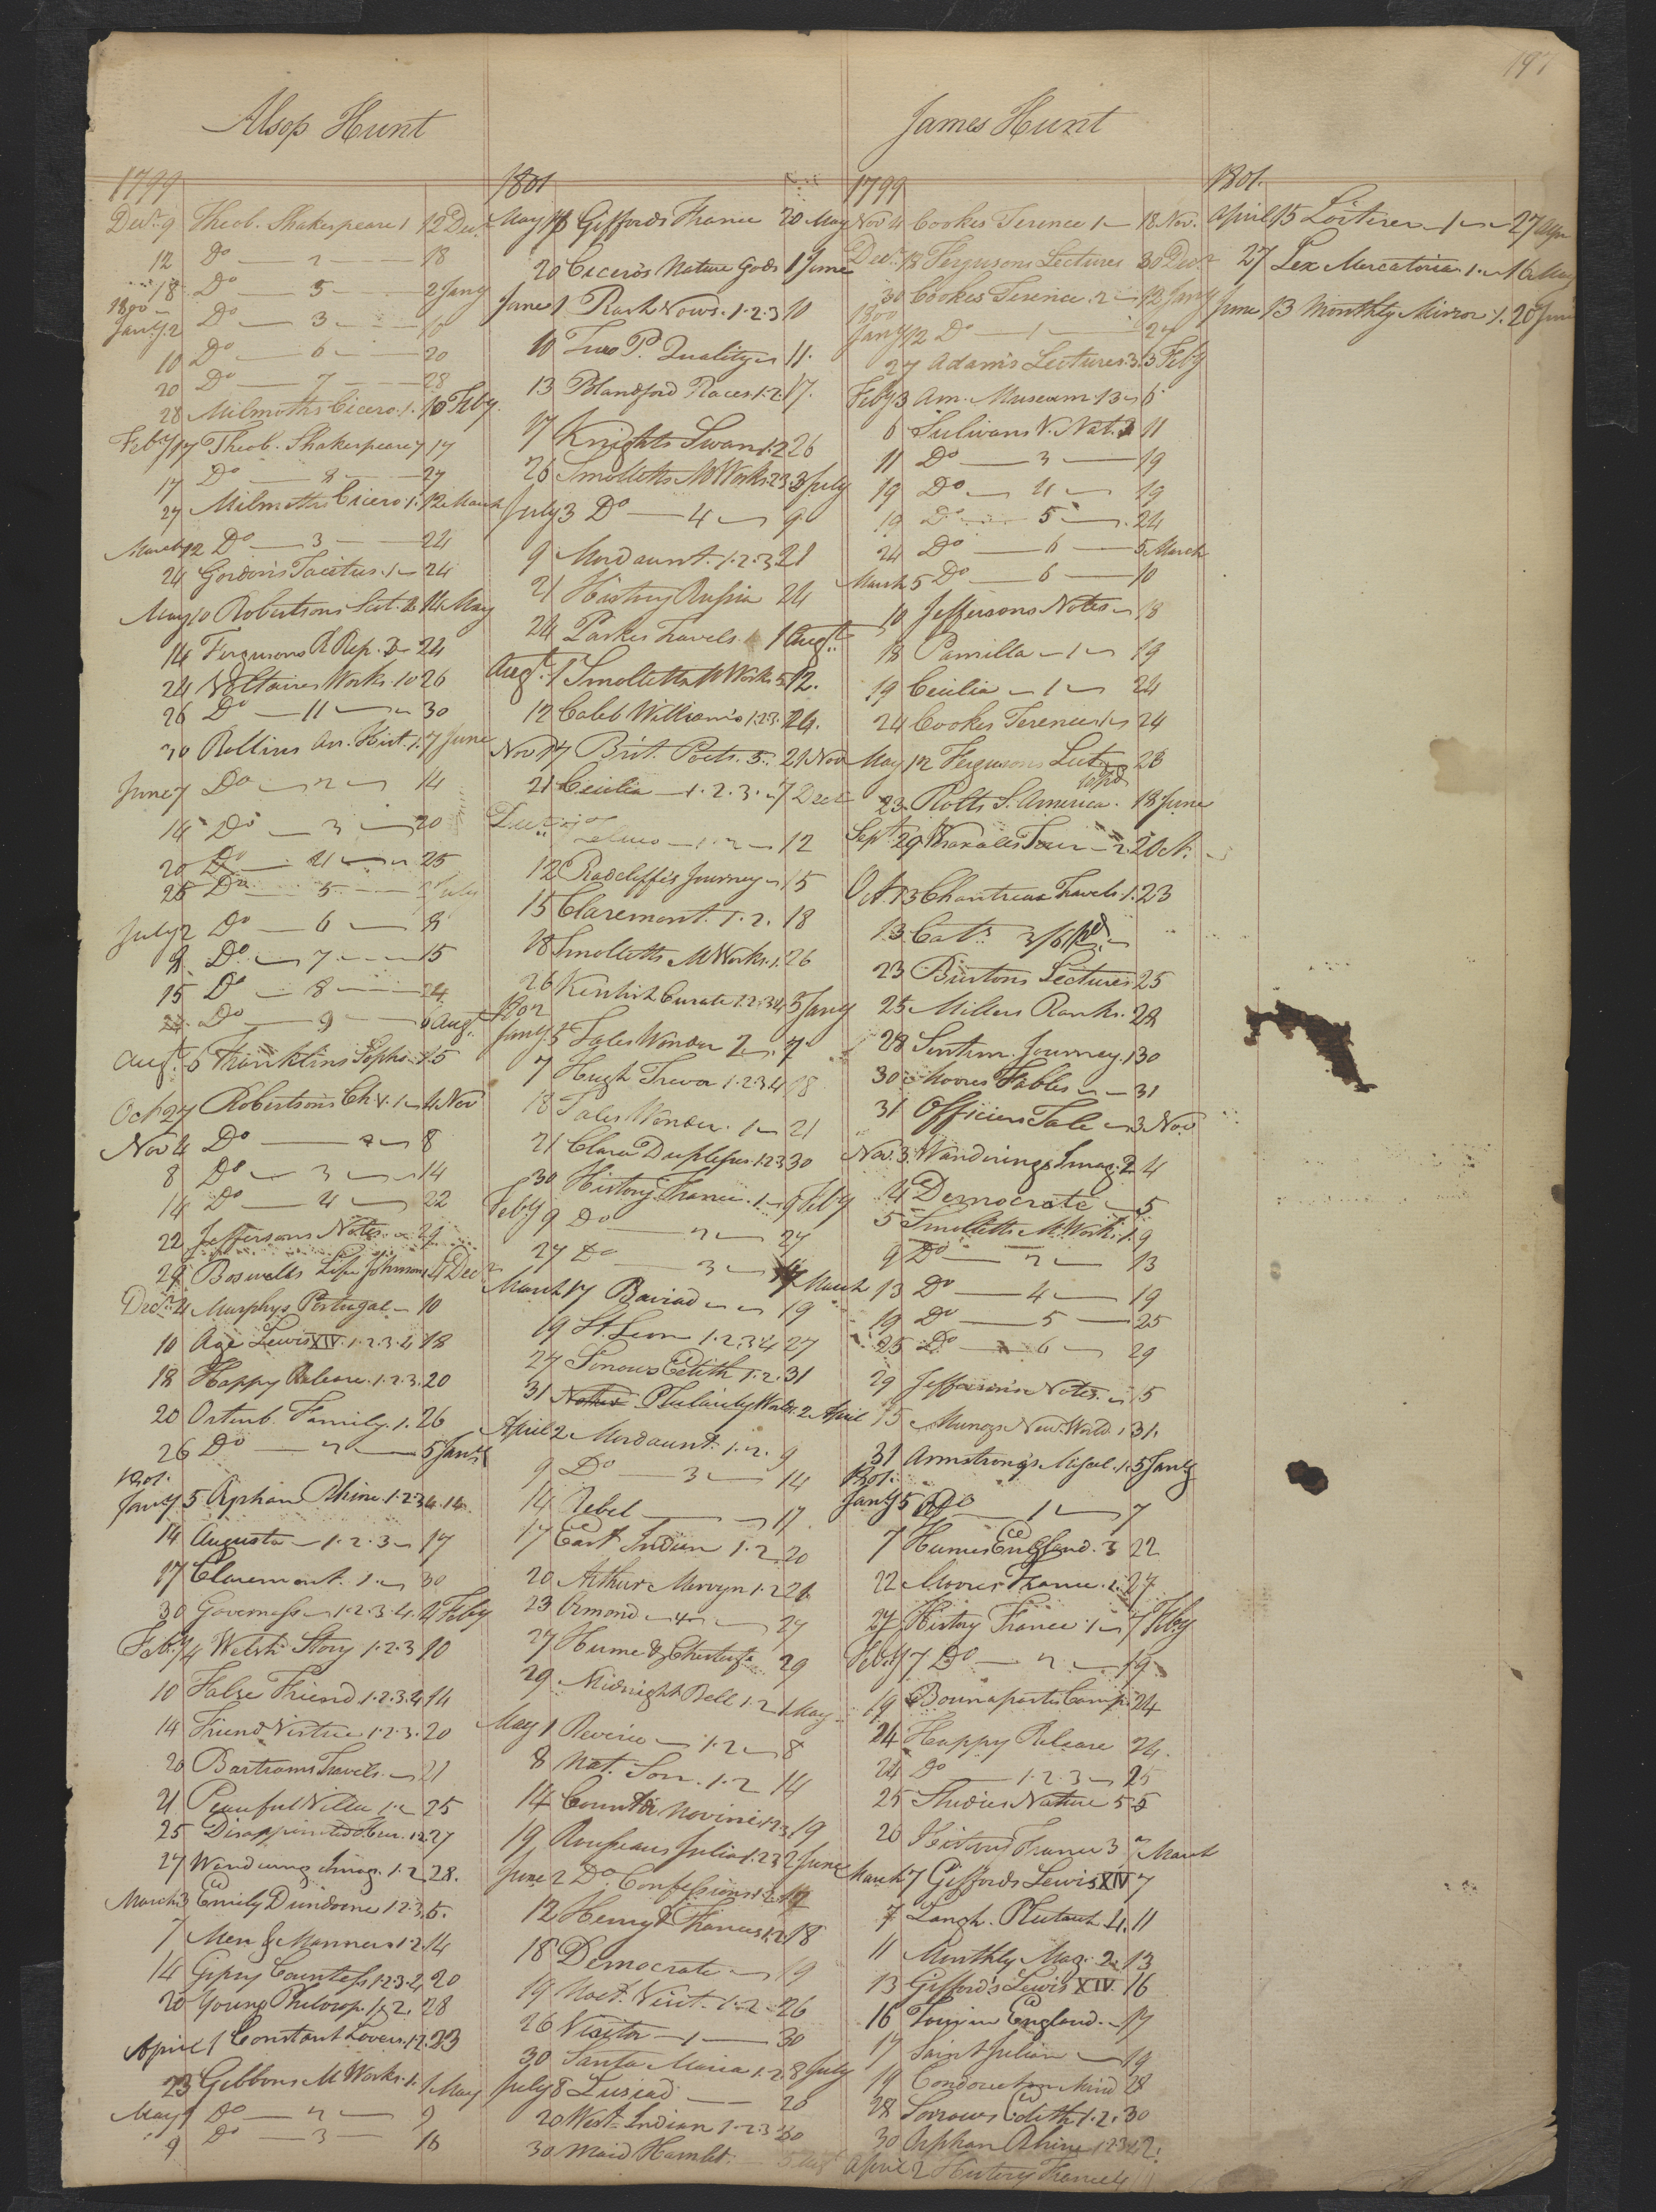 197
Alsop Hunt
1799
Decr. 9 Theob. Shakespeare 1 12 Decr.
12 Do — 2 — 18
18 Do — 5 — 2 Jany
1800
Jany. 2 Do — 3 —
10 Do — 6 — 20
20 Do — 7 — 28
28 Milmoths Cicero. 1. 10 Feby.
Feby 17 Theob. Shakespeare 7 17
17 Do — 8 — 27
27 Milmoths Cicero. 1. 12 March
March 12 Do — 3 — 24
24 Gordon's Tacitus. 1 — 24
May 10 Robertsons Scot. 2. 14 May
14 Fergusons R Rep. 2 — 24
24 Voltaires Works. 10 26
26 Do — 11 — 30
30 Rollins An. Hist. 1. 7 June
June 7 Do — 2 — 14
14 Do — 3 — 20
20 Do — 4 — 25
25 Do — 5 — 2 July
July 2 Do — 6 — 9
9 Do — 7 — 15
15 Do — 8 — 24
24 Do — 9 — 6 Augt.
Augt. 6 Franklins Sopho. 15
Oct 27 Robertsons Ch. V. 1 — 4 Nov
Nov 4 Do — 2 — 8
8 Do — 3 — 14
14 Do — 4 — 22
22 Jeffersons Notes — 29
29 Boswells Life Johnson 4 Decr
Decr. 4 Murphys Portugal — 10
10 Age Lewis XIV. 1.2.3.4 18
18 Happy Release. 1.2.3. 20
20 Ortenb. Family. 1. 26
26 Do — 2 — 5 Jany
1801.
Jany 5 Orphan Rhine. 1.2.3.4. 14
14 Augusta — 1.2.3 — 17
17 Claremont. 1. — 30
30 Governess — 1.2.3.4. 4 Feby
Feby 4 Welsh Story 1.2.3 10
10 False Friend 1.2.3.4 14
14 Friend Virtue 1.2.3. 20
20 Bartrams Travels. — 21
21 Peaceful Villa 1.2 25
25 Disappointed Heir. 1.2. 27
27 Wandering Imag. 1.2 28.
March 3 Emily Dundorne 1.2.3. 5.
7 Men & Manners 1.2. 14
14 Gipsy Countess 1.2.3.4 20
20 Young Philosop. 1 & 2. 28
April 1 Constant Lovers. 1.2. 23
23 Gibbons M Works. 1. 1 May
May 1 Do — 2 — 9
9 Do — 3 — 16
1801
May 16 Giffords France 20 May
20 Cicero's Nature Gods 1 June
June 1 Rash Vows. 1.2.3 10
10 Two P. Quality — 11.
13 Blandford Races. 1.2. 17.
17 Knights Swan 1.2 26
26 Smolletts M Works. 2.3. 3 July
July 3 Do — 4 — 9
9 Mordaunt. 1.2.3 21
21 History Russia 24
24 Parkes Travels. 1 Augt.
Augt. 1 Smolletts M Works 5 12.
12 Caleb Williams 1.2.3. 24.
Nov 17 Brit. Poets. 5. 21 Nov
21 Cecilia — 1.2.3. — 7 Decr
— 1.2 — 12
12 Radcliffes Journey — 15
15 Claremont. 1.2. 18
18 Smolletts M Works. 1. 26
26 Kentish Curate 1.2.3.4 5 Jany
1802
Jany. 5 Tales Wonder 2 — 7
7 Hugh Trevor 1.2.3.4 18
18 Tales Wonder. 1 — 21
21 Clara Duplessis 1.2.3 30
30 History France. 1 — 9 Feby
Feby 9 Do — 2 — 27
27 Do — 3 — 17 March
March 17 Baviad — 19
19 St. Leon 1.2.3.4 27
27 Sorrows Edith 1.2. 31
31 Plularity Worlds. 2 April
April 2 Mordaunt. 1.2. 9
9 Do — 3 — 14
14 Rebel — 17
17 East Indian 1.2 20
20 Arthur Mervyn 1.2 21
23 Ormond — 27
27 Hume & Chesterf. 29
29 Midnight Bell 1.2 1 May
May 1 Reverie — 1.2 — 8
8 Nat. Son. 1.2 14
14 Count di Novini 1.2.3 19
19 Rousseaus Julia 1.2.3 2 June
June 2 Do. Confessions 1.2. 12
12 Henry & Frances 1.2 18
18 Democrate — 19
19 Noct. Visit. 1.2 26
26 Visitor — 1 — 30
30 Santa Maria 1.2 8 July
July 8 Lusiad — 20
20 West Indian 1.2.3 30
30 Maid Hamlet. — 5 Augt
James Hunt
1799
Nov 4 Cookes Terence 1 — 18 Nov.
Decr. 18 Fergusons Lectures 30 Decr
30 Cookes Terence. 2 — 12 Jany
1800
Jany 12 Do — 1 — 27
27 Adams Lectures. 3. 3 Feby
Feby 3 Am. Museum 13 — 6
6 Sulivans V. Nat. 2 11
11 Do — 3 — 19
19 Do — 4 — 19
19 Do — 5 — 24
24 Do — 6 — 5 March
March 5 Do — 6 — 10
10 Jeffersons Notes — 18
18 Camilla — 1 — 19
19 Cecilia — 1 — 24
24 Cookes Terence 1 — 24
May 12 Fergusons Lect — 23
23 Rolts S. America. 18 June
Sept. 29 Wraxalls Tour — 2. 2 Oct.
Oct. 13 Chantreau Travels. 1. 23
13 Cats. 3/6 pd —
23 Burtons Lectures 25
25 Millers Ranks. 28
28 Sentim. Journey. 1 30
30 Moores Fables — 31
31 Officers Tale — 3 Nov
Nov. 3. Wanderings Imag. 2 4
4 Democrate — 5
5 Smolletts M. Work. 1. 9
9 Do — 2 — 13
13 Do — 4 — 19
19 Do — 5 — 25
25 Do — 6 — 29
29 Jeffersons Notes. — 15
15 Munozs New World. 1 31.
31 Armstrongs Miscel. 1. 5 Jany
1801.
Jany 5 Do — 1 — 7
7 Humes England. 3 22
22 Moores France. 2. 27
27 History France. 1 — 7 Feby
Feby 7 Do — 2 — 19
19 Bounapartes Camp. 24
24 Happy Release 24.
24 Do — 1.2.3 — 25
25 Studies Nature 5
20 History France 3 7 March
March 7 Giffords Lewis XIV 7
7 Langh. Plutarch 4. 11
11 Monthly Mag. 2 13
13 Gifford's Lewis XIV. 16
16 Tour in England. — 17
17 Saint Julian — 19
19 Condorcet on Mind 28
28 Sorrows Edith 1.2. 30
30 Orphan Rhine 1.2.3.4 2.
April 2 History France 4
1801.
April 15 Loiterer — 1 — 27 Apr
27 Lex Mercatoria. 1. — 16 May
June 13 Monthly Mirror 1. 20 June